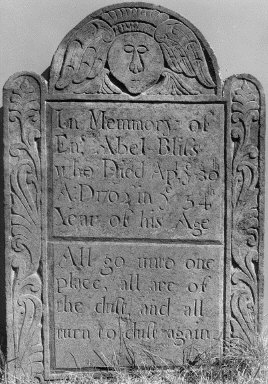 In Memmory of
Ens. Abel Bliſs
who Died Apl ye 30
A:D 1762 in ye 54
Year of his Age
All go unto one
place, all are of
the duſt, and all
turn to duſt again